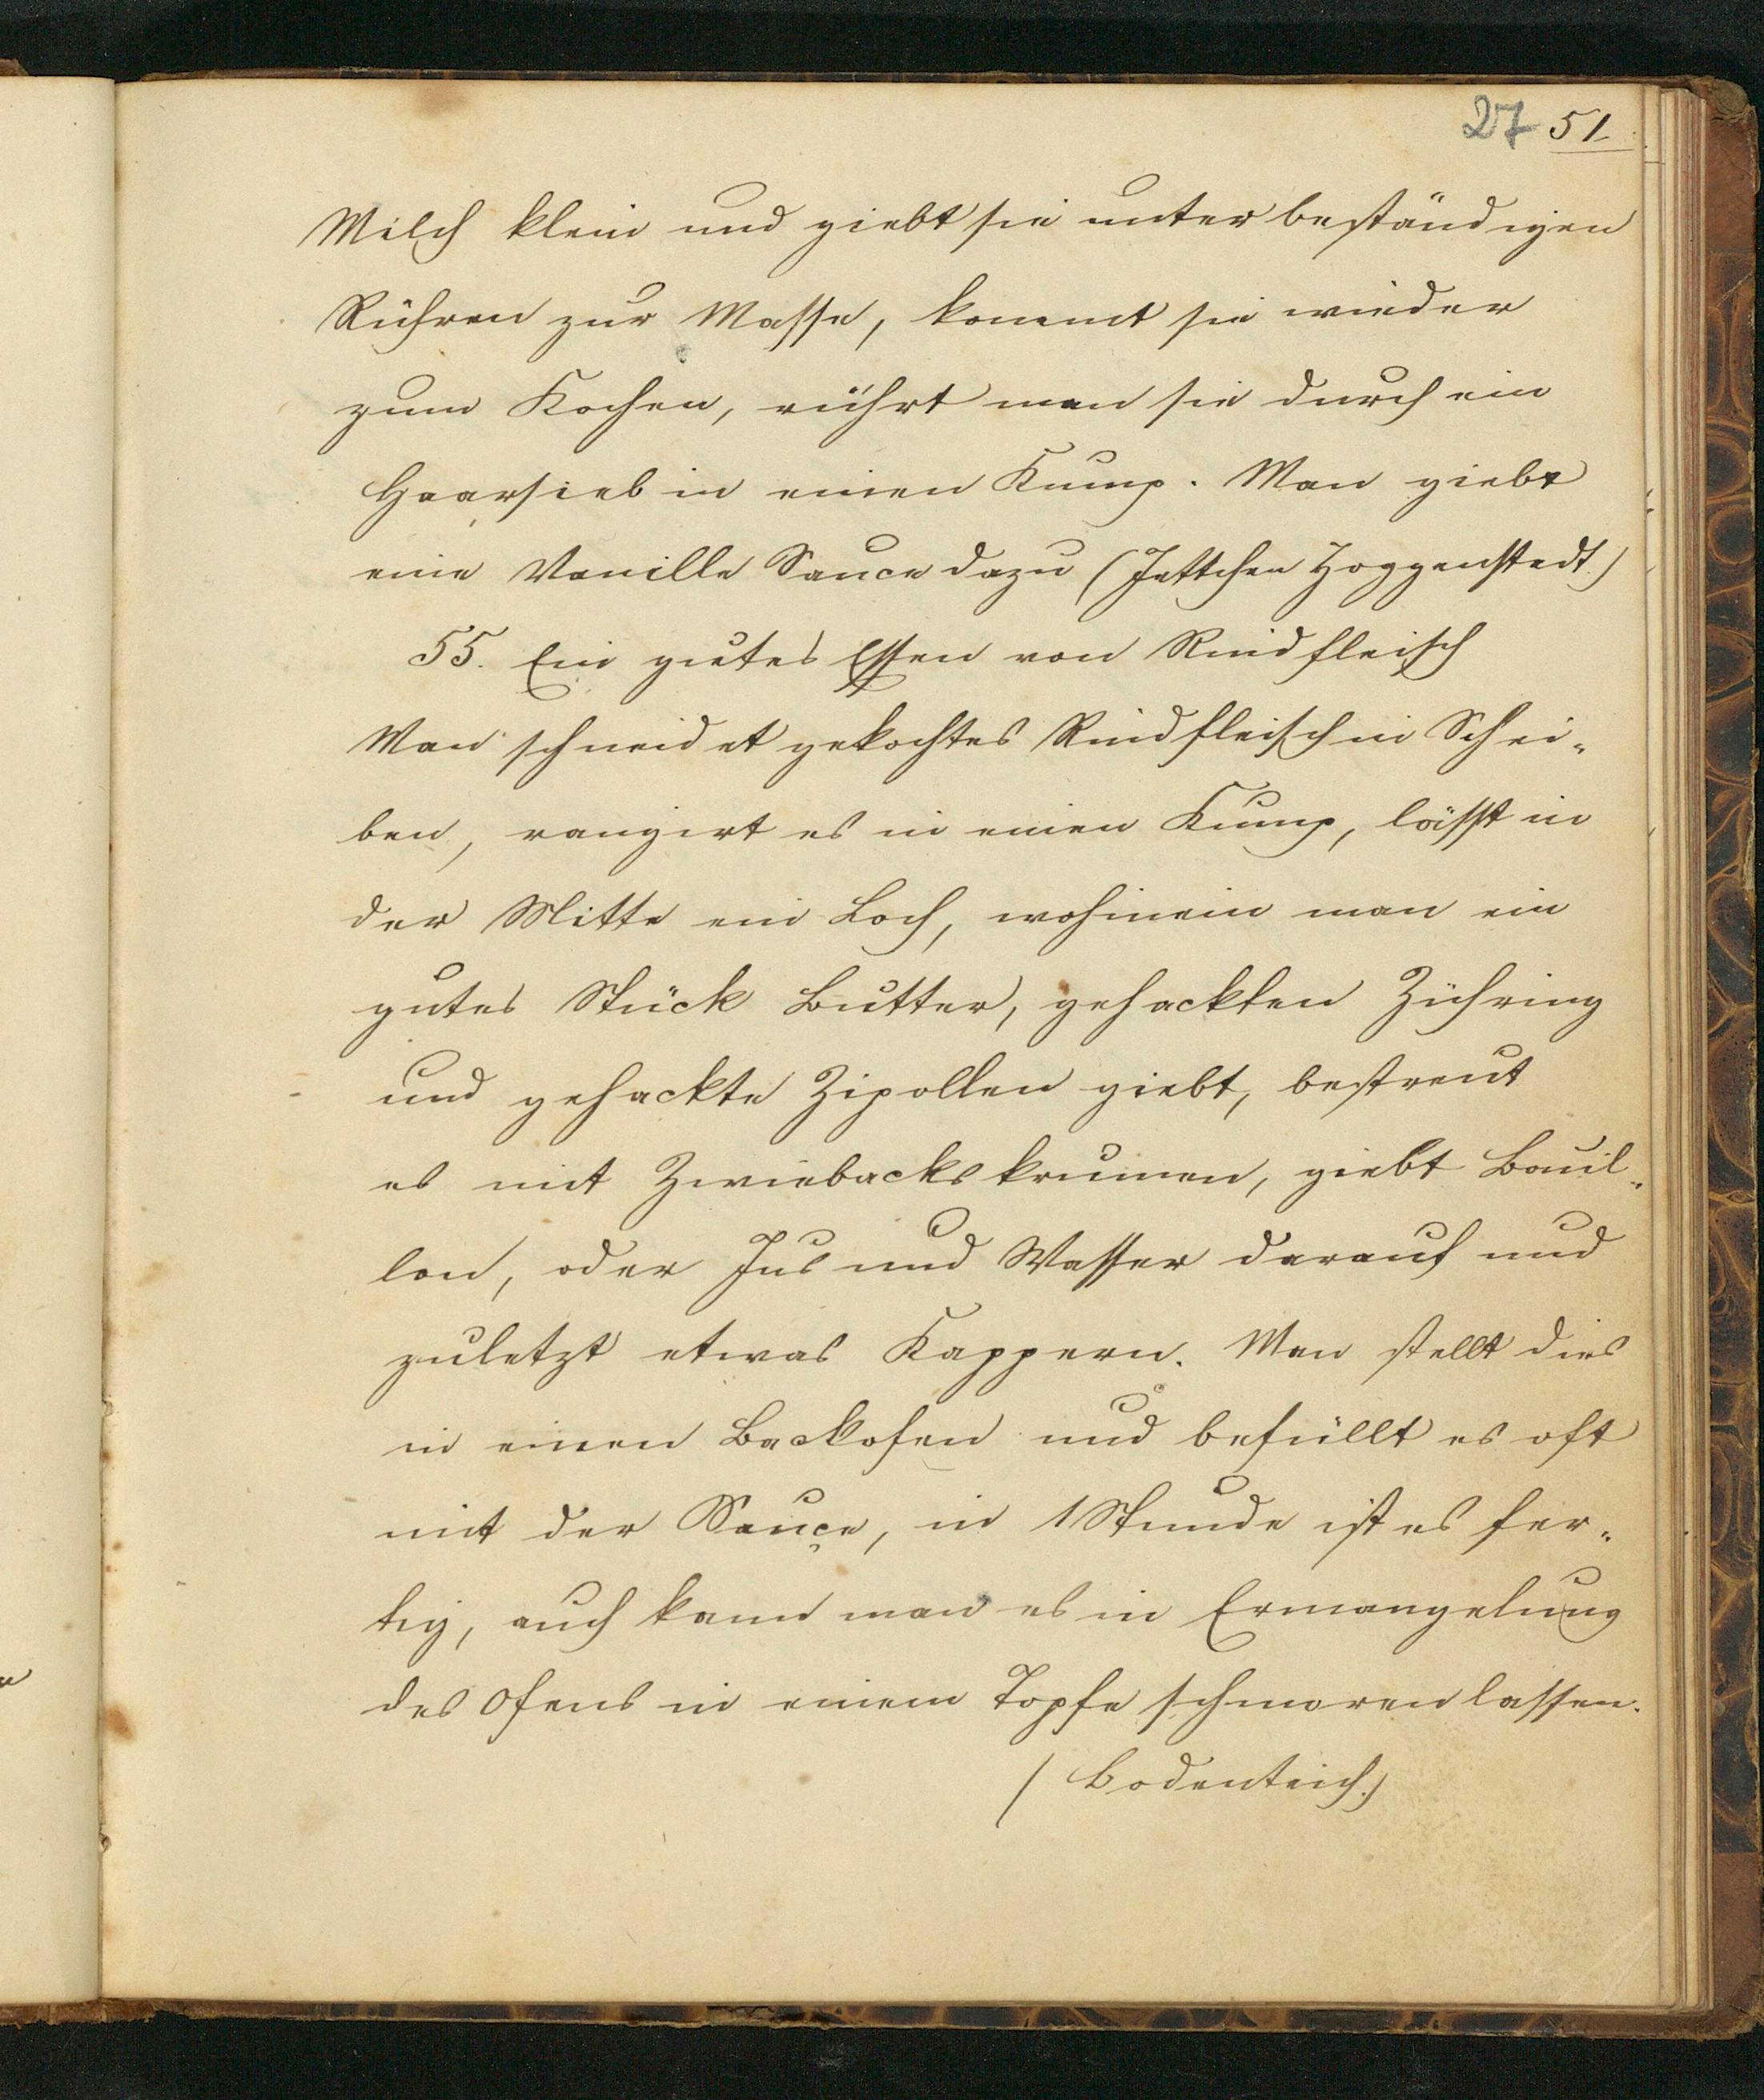 27 51
Milch klein und giebt sie unter beständigen
Rühren zur Masse, kommt sie wieder
zum Kochen, rührt man sie durch ein
Haarsieb in einen Kump. Man giebt
eine Vanille Sauce dazu (Jettchen Hoggenstedt.)
55. Ein gutes Essen von Rindfleisch
Man schneidet gekochtes Rindfleisch in Schei-
ben, rangirt es in einen Kump, lässt in
der Mitte ein Loch, wohinein man ein
gutes Stück Butter, gehackten Hühring
und gehackte Zipollen giebt, bestreut
es mit Zwiebackskrumen, giebt Bouil-
lon, oder Jus und Wasser darauf und
zuletzt etwas Kappern. Man stellt dies
in einen Backofen und befüllt es oft
mit der Sauçe, in 1 Stunde ist es fer-
tig, auch kann man es in Ermangelung
des Ofens in einem Topfe schmoren lassen.
(Bodenteich.)